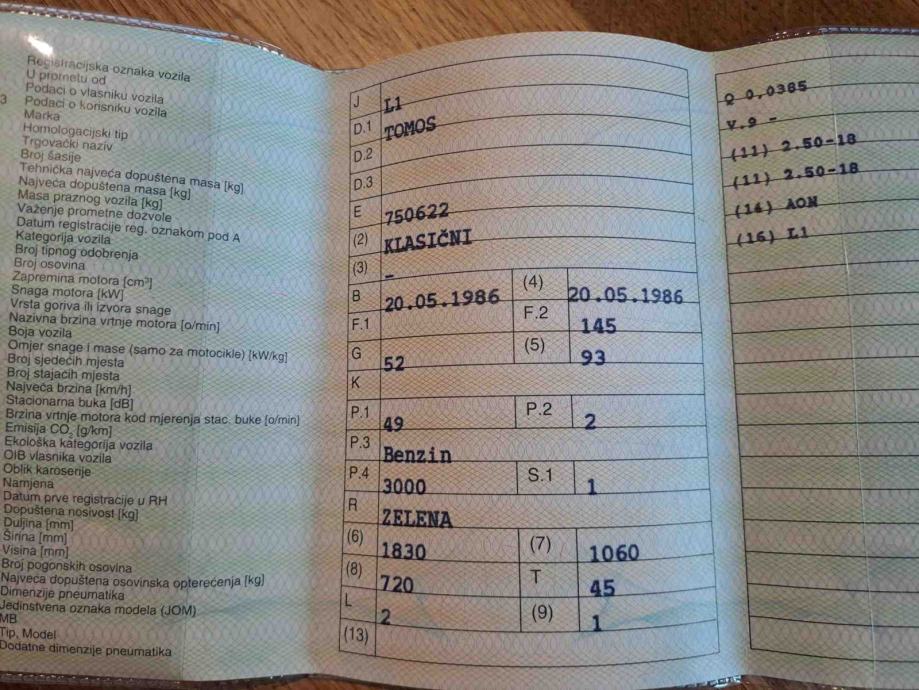 Registracijska oznaka vozila
U prometu od
Podaci o vlasniku vozila
3 Podaci o korisniku vozila
Marka
Homologacijski tip
Trgovački naziv
Broj šasije
Tehnička najveća dopuštena masa [kg]
Najveća dopuštena masa [kg]
Masa praznog vozila [kg]
Važenje prometne dozvole
Datum registracije reg. oznakom pod A
Kategorija vozila
Broj tipnog odobrenja
Broj osovina
Zapremina motora [cm³]
Snaga motora [kW]
Vrsta goriva ili izvora snage
Nazivna brzina vrtnje motora [o/min]
Boja vozila
Omjer snage i mase (samo za motocikle) [kW/kg]
Broj sjedećih mjesta
Broj stajaćih mjesta
Najveća brzina [km/h]
Stacionarna buka [dB]
Brzina vrtnje motora kod mjerenja stac. buke [o/min]
Emisija CO₂ [g/km]
Ekološka kategorija vozila
OIB vlasnika vozila
Oblik karoserije
Namjena
Datum prve registracije u RH
Dopuštena nosivost [kg]
Duljina [mm]
Širina [mm]
Visina [mm]
Broj pogonskih osovina
Najveća dopuštena osovinska opterećenja [kg]
Dimenzije pneumatika
Jedinstvena oznaka modela (JOM)
MB
Tip, Model
Dodatne dimenzije pneumatika
J L1
D.1 TOMOS
D.2
D.3
E 750622
(2) KLASIČNI
(3) -
B 20.05.1986 (4) 20.05.1986
F.1 F.2 145
G 52 (5) 93
K
P.1 49 P.2 2
P.3 Benzin
P.4 3000 S.1 1
R ZELENA
(6) 1830 (7) 1060
(8) 720 T 45
L 2 (9) 1
(13)
Q 0,0385
V.9 -
(11) 2.50-18
(11) 2.50-18
(14) AON
(16) L1